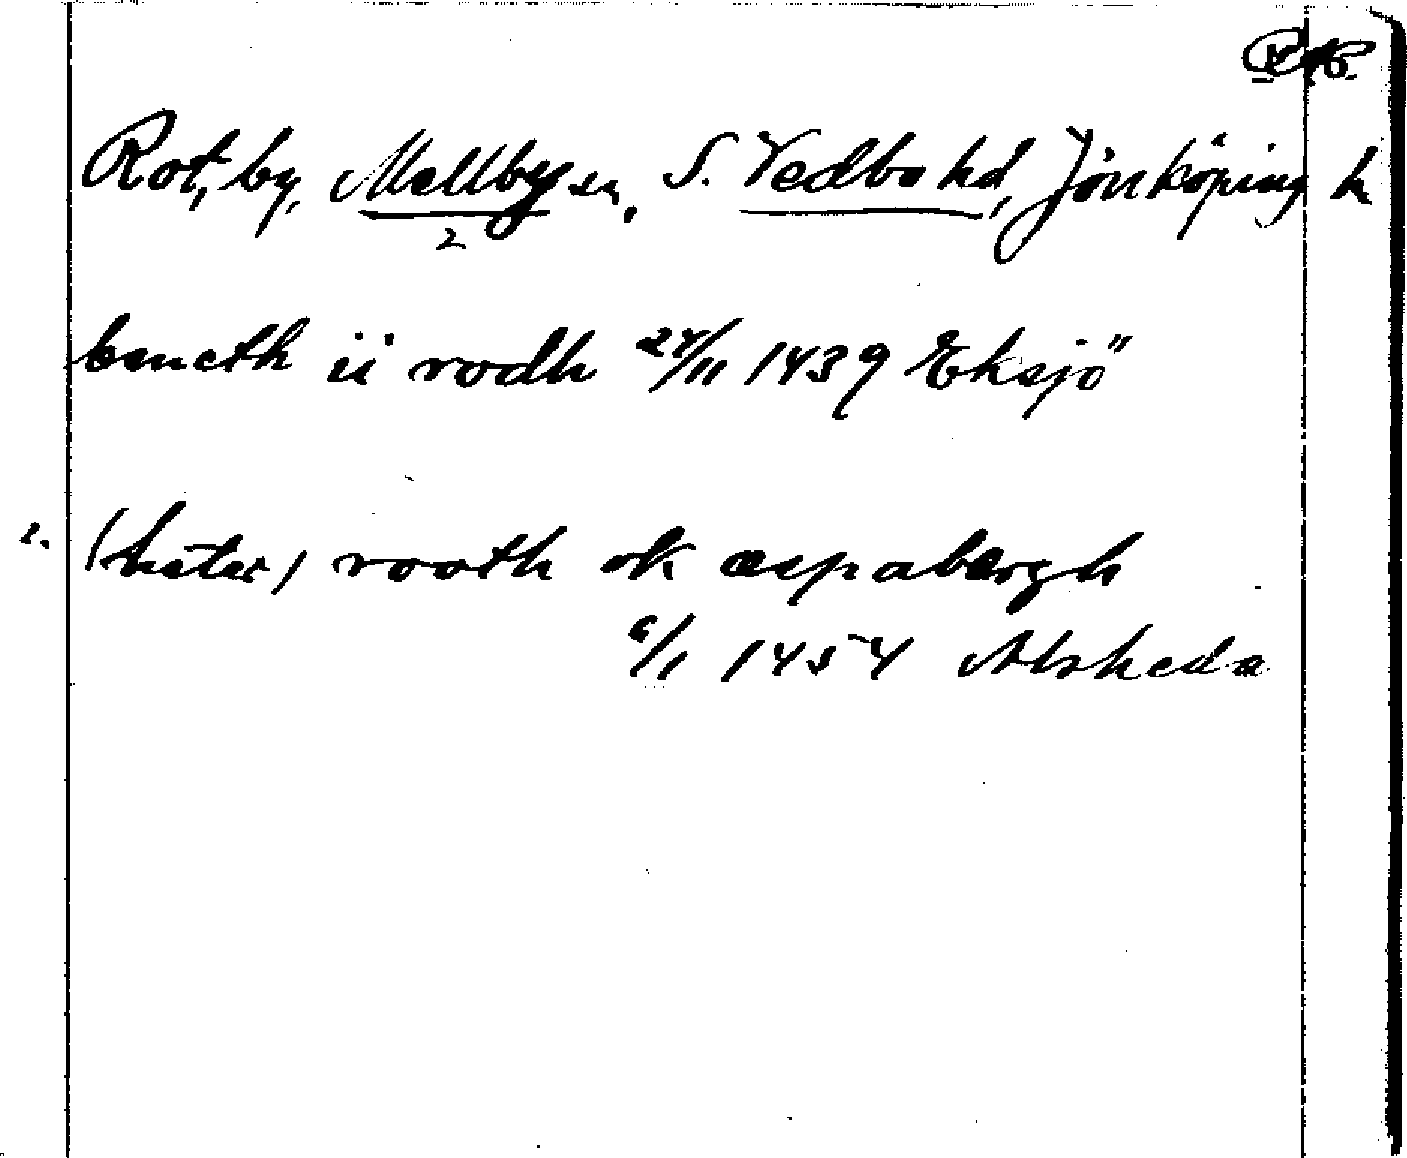 Rot, by, Mellby sn, S. Vedbo hd, Jönköping l
2
beneth ii rodh 24/11 1439 Eksjö
2. (heter) rooth ok æspabergh
6/1 1454 Alsheda